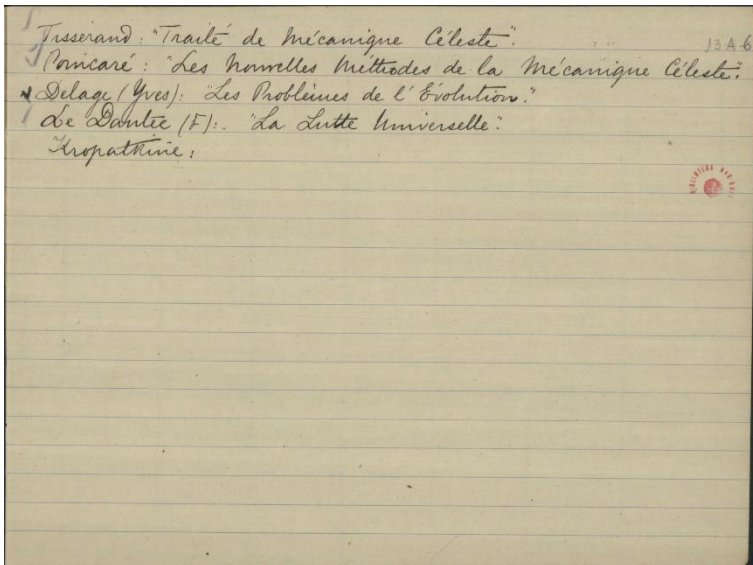 Tisserand: "Traité de Mécanique Céleste".
13A-6
Poincaré: "Les Nouvelles Méthodes de la Mécanique Céleste".
Delage (Yves): "Les Problèmes de l'Évolution."
Le Dantec (F):. "La Lutte Universelle".
Kropatkine: